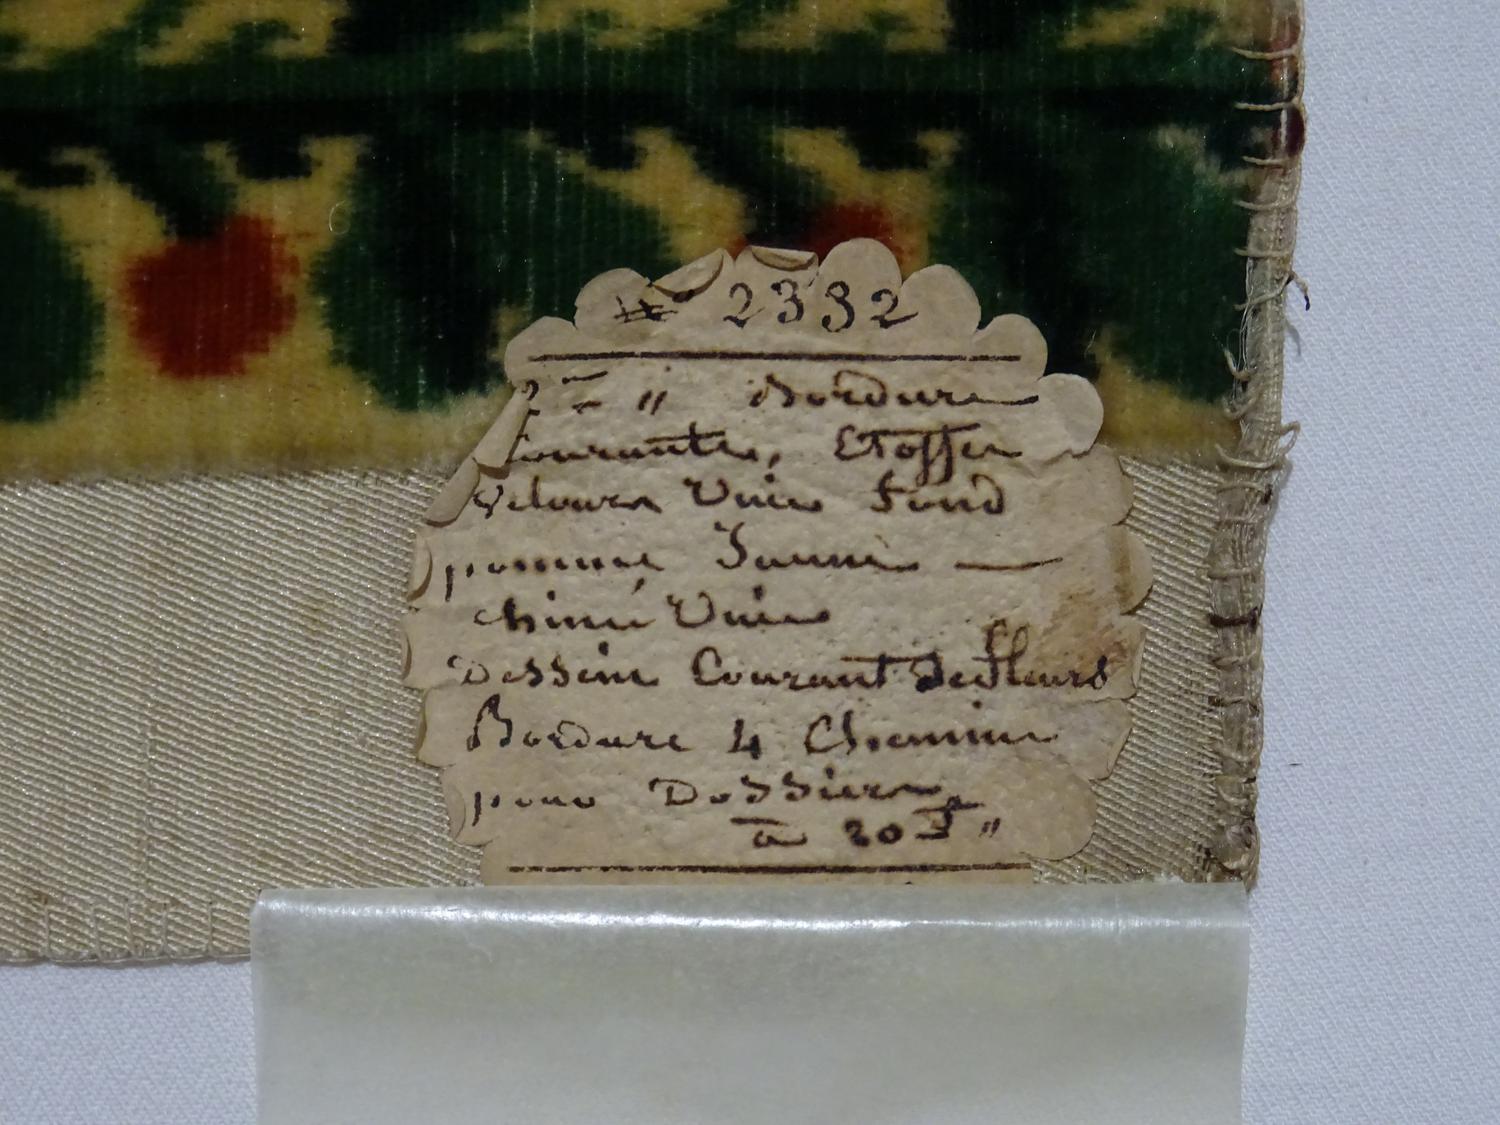 2332
Bordure
Courante, Etoffe
velours Unie fond
pomme Jaune —
chiné Unie
Dessein Courant de fleurs
Bordure 4 Chemin
pour Dossier
a 20 "